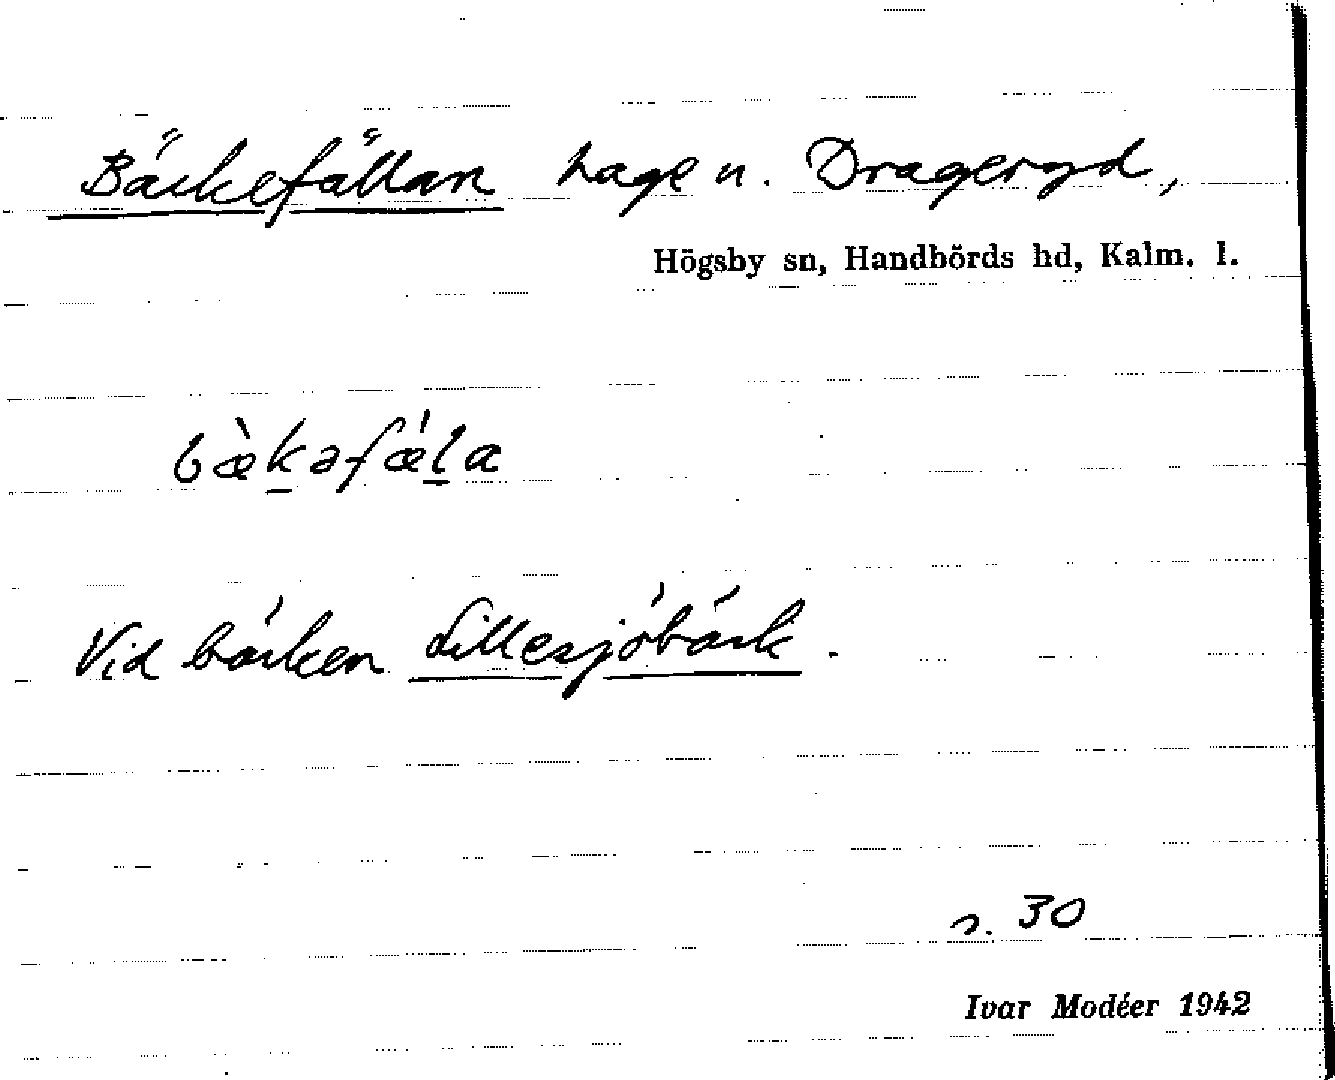 Bäckefällan hage u. Drageryd,
Högsby sn, Handbörds hd, Kalm. l.
bæ̀k̲əfǽl̲a
Vid bäcken Lillesjöbäck.
s. 30
Ivar Modéer 1942